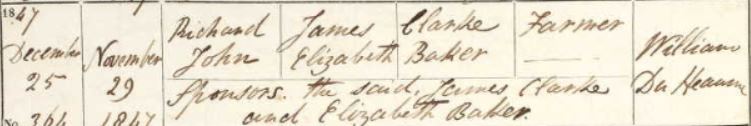 1847
December 25
No. 364
November 29 1847
Richard John
James
Elizabeth
Clarke
Baker
Farmer
Sponsors. the said, James Clarke
and Elizabeth Baker.
William
Du Heaume